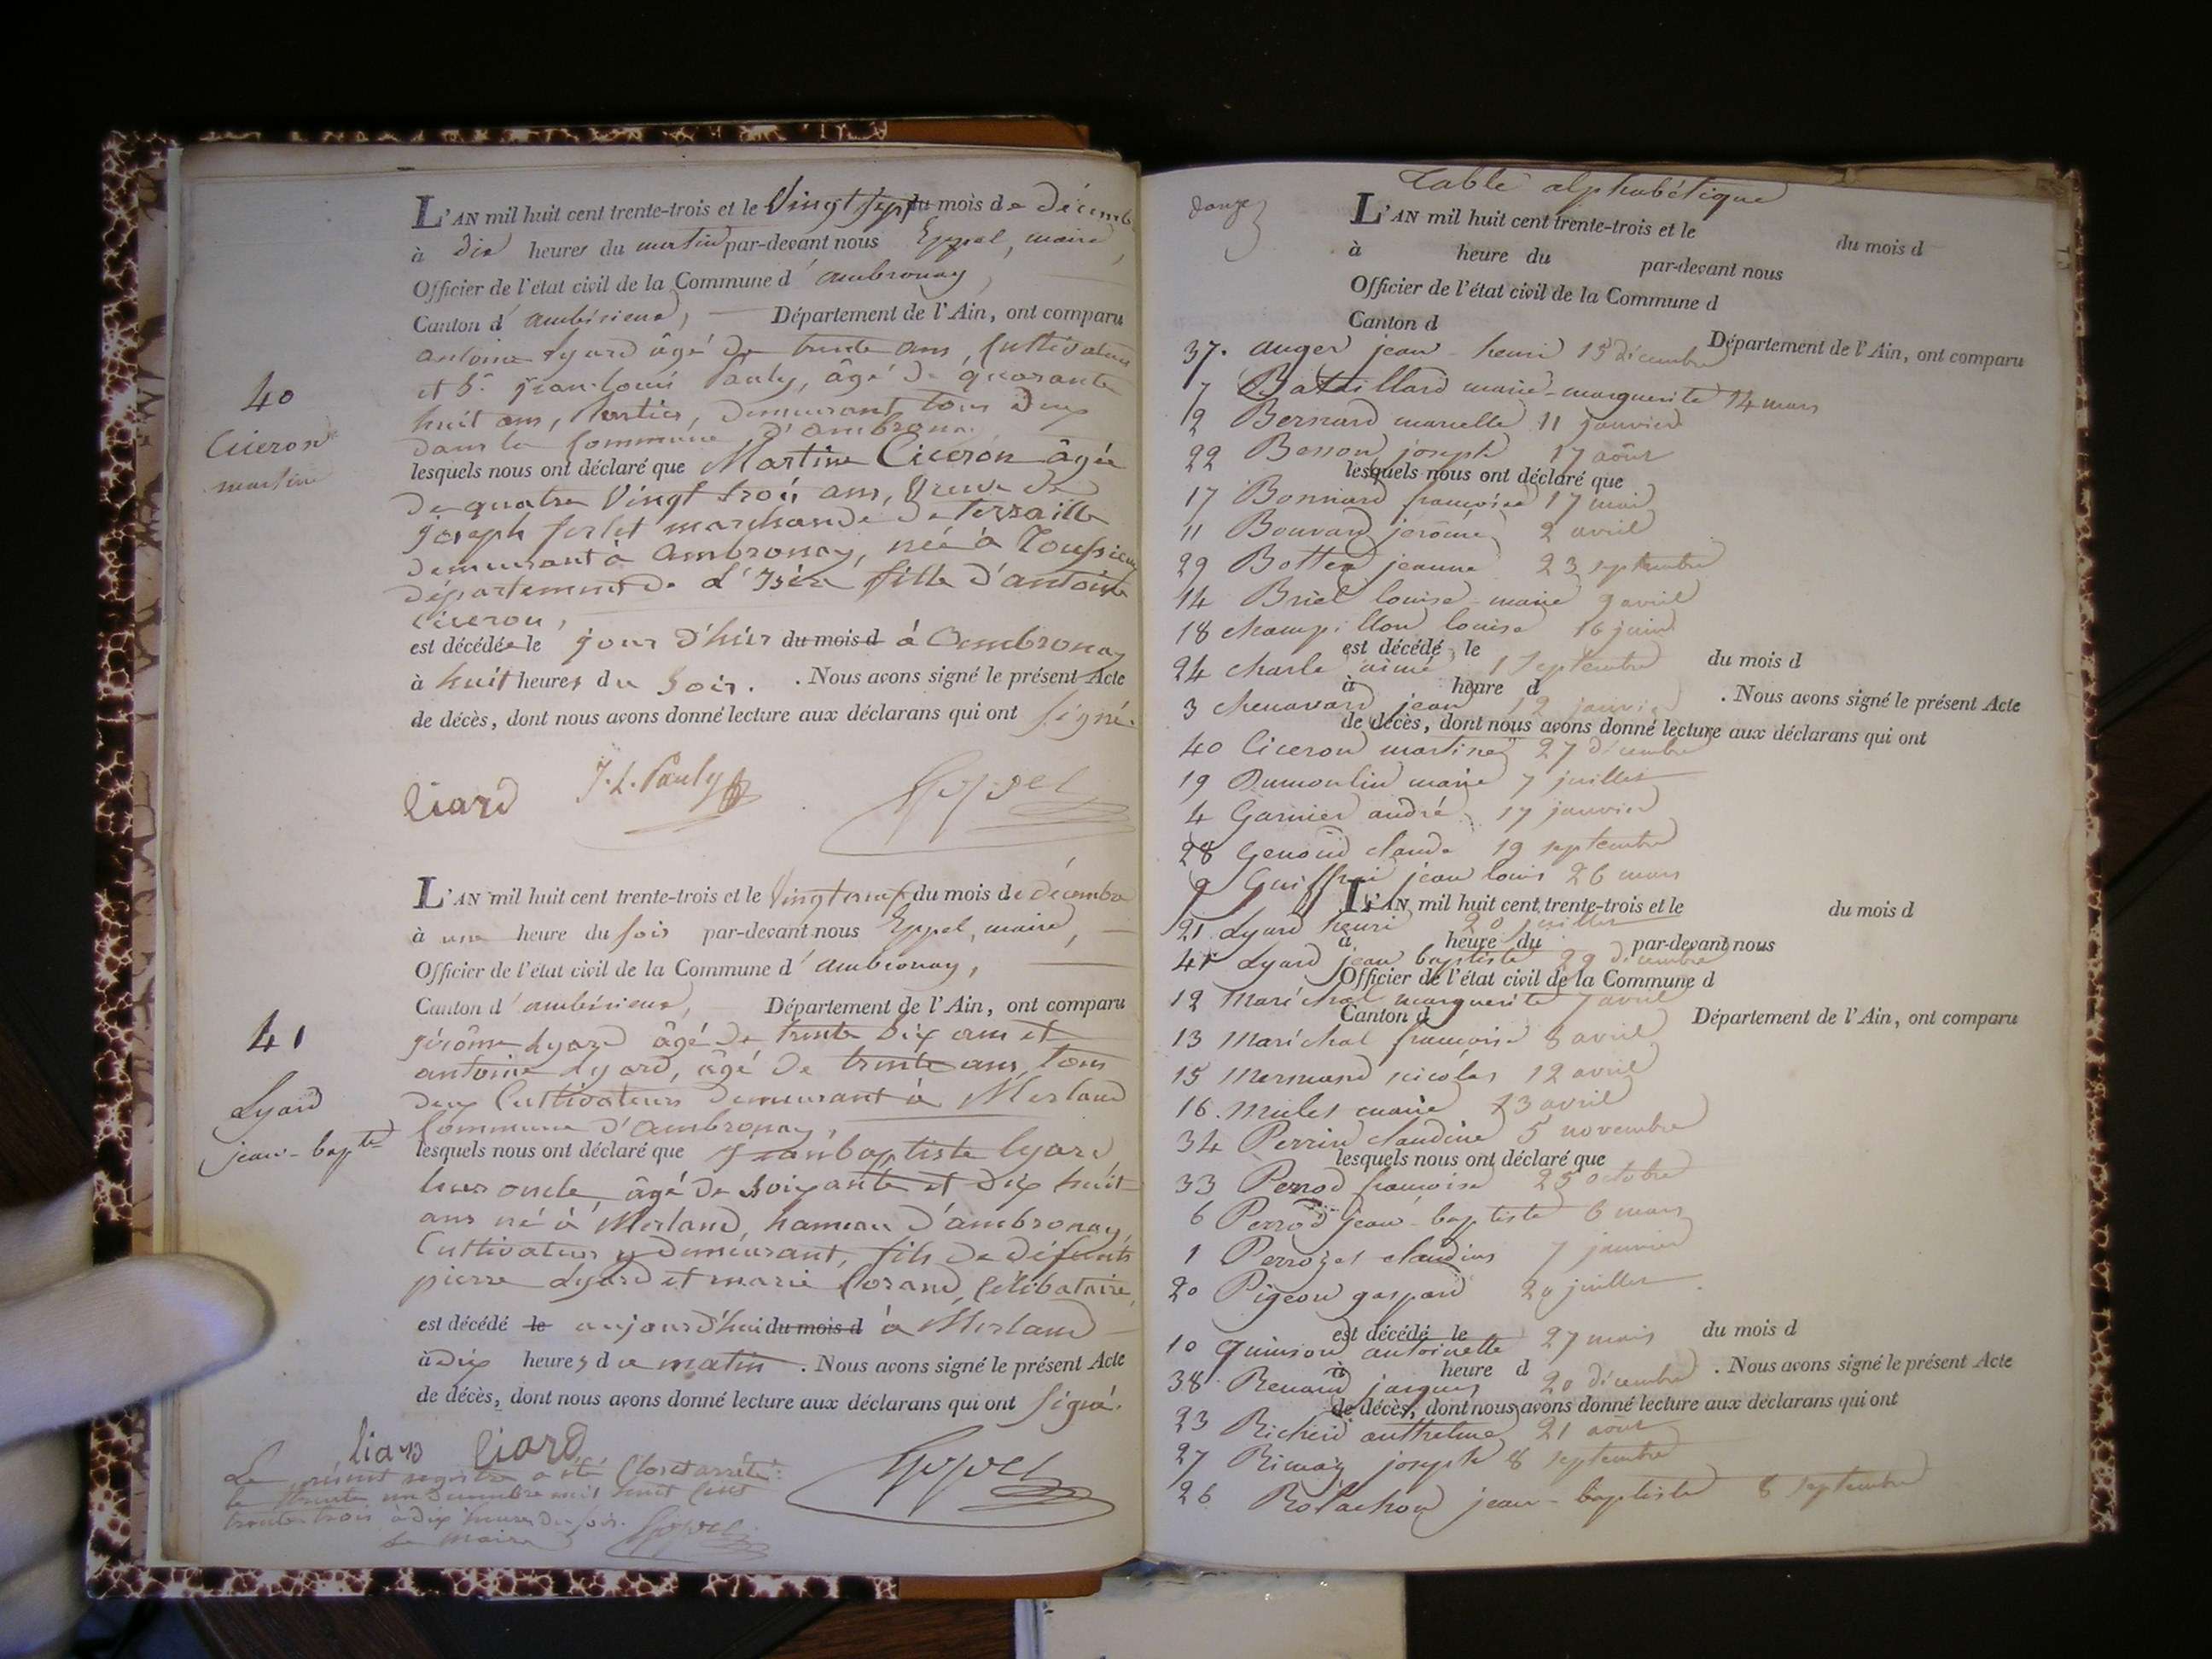 L'AN mil huit cent trente-trois et le Vingt sept du mois de décemb
à dix heures du matin par-devant nous Eppel, maire,
Officier de l'état civil de la Commune d'ambronay,
Canton d'ambérieux, Département de l'Ain, ont comparu
antoine Lyard âgé de trente ans, Cultivateur
et Sr. jean-louis Pauly, âgé de quarante
huit ans, Rentier, demeurant tous Deux
dans la Commune d'ambronay
40
Ciceron
martine
lesquels nous ont déclaré que Martine Ciceron âgée
de quatre Vingt trois ans, Veuve de
joseph ferlet marchande de terraille
demeurant à ambronay, née à Toussieu
département de l'Isère, fille d'antoine
Ciceron,
est décédée le jour d'hier du mois d à Ambronay
à huit heures du Soir. . Nous avons signé le présent Acte
de décès, dont nous avons donné lecture aux déclarans qui ont signé.
liard J. L. Pauly Eppel
L'AN mil huit cent trente-trois et le Vingt neuf du mois de décembre
à une heure du soir par-devant nous Eppel, maire,
Officier de l'état civil de la Commune d'ambronay,
Canton d'ambérieux, Département de l'Ain, ont comparu
41
jérôme Lyard âgé de trente Six ans et
antoine Lyard, âgé de trente ans, tous
deux Cultivateurs demeurant à Merland
Commune d'ambronay,
Lyard
jean-bapte
lesquels nous ont déclaré que jean baptiste lyard
leur oncle, âgé de Soixante et dix huit
ans né à Merland, hameau d'ambronay,
Cultivateur y demeurant, fils de défunts
pierre Lyard et marie Corand, Célibataire,
est décédé le aujourd'hui du mois d à Merland
à dix heures du matin . Nous avons signé le présent Acte
de décès, dont nous avons donné lecture aux déclarans qui ont signé.
liard liard Eppel
Le présent registre a été Clos et arrêté
le trente un Décembre mil huit Cent
trente trois à dix heures du soir.
Le maire Eppel
Table alphabétique
douze
L'AN mil huit cent trente-trois et le du mois d
à heure du par-devant nous
Officier de l'état civil de la Commune d
Canton d Département de l'Ain, ont comparu
37. auger jean-henri 15 décembre
7 Bataillard marie-marguerite 14 mars
2 Bernard marielle 11 janvier
22 Besson joseph 17 août
lesquels nous ont déclaré que
17 Bonnard françoise 17 mai
11 Bouvard jérôme 2 avril
29 Bottex jeanne 23 septembre
14 Briel louise-marie 9 avril
18 champillon louise 16 juin
est décédé le du mois d
24 charle aimé 1 septembre
à heure d . Nous avons signé le présent Acte
3 chenavard jean 12 janvier
de décès, dont nous avons donné lecture aux déclarans qui ont
40 Ciceron martine 27 décembre
19 Dumoulin marie 7 juillet
4 Garnier andré 17 janvier
28 Genoud claude 19 septembre
9 Guiffrei jean louis 26 mars
L'AN mil huit cent trente-trois et le du mois d
21 Lyard henri 20 juillet
à heure du par-devant nous
41 Lyard jean baptiste 29 décembre
Officier de l'état civil de la Commune d
12 Maréchal marguerite 7 avril
Canton d Département de l'Ain, ont comparu
13 Maréchal françoise 8 avril
15 Mermand nicolas 12 avril
16. Mulet marie 23 avril
34 Perrin claudine 5 novembre
lesquels nous ont déclaré que
33 Perrod françoise 25 octobre
6 Perrod jean-baptiste 6 mars
1 Perrozet claudius 7 janvier
20 Pigeon gaspard 20 juillet
est décédé le du mois d
10 quinson antoinette 27 mars
à heure d . Nous avons signé le présent Acte
38 Renard jacques 20 décembre
de décès, dont nous avons donné lecture aux déclarans qui ont
23 Richerd anthelme 21 août
27 Rimay joseph 8 septembre
26 Rolachon jean-baptiste 8 septembre